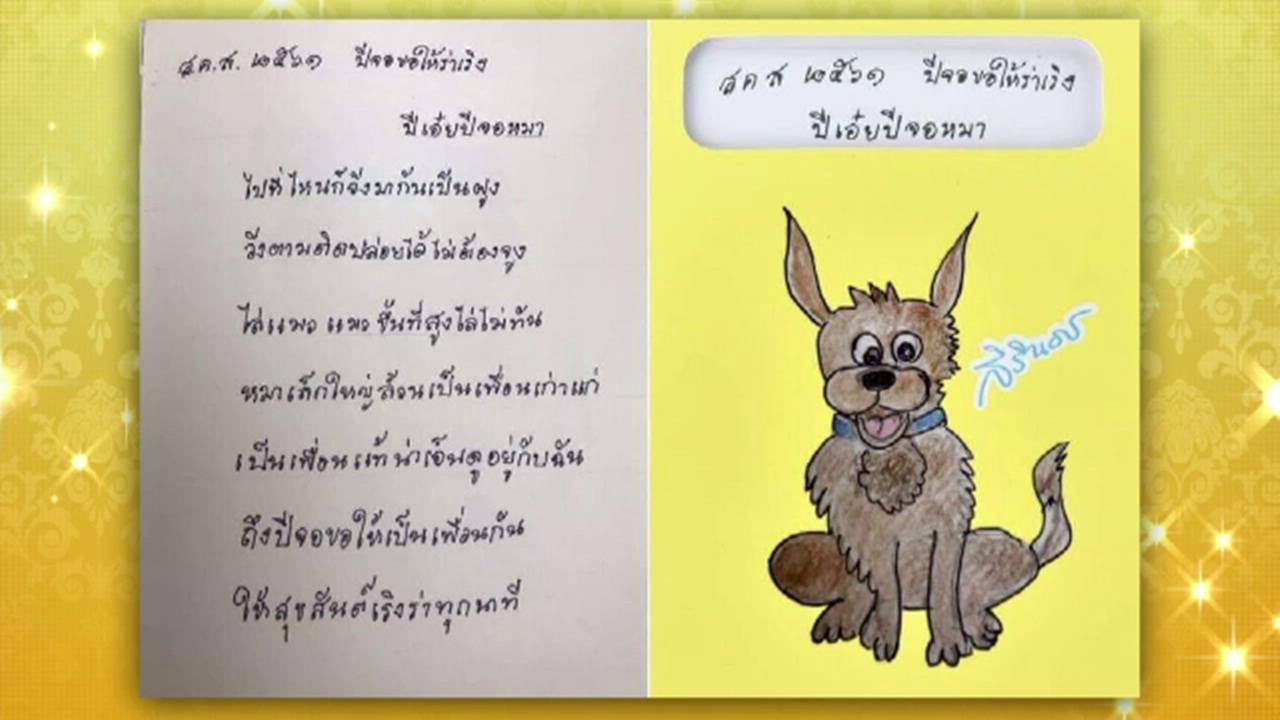 ส.ค.ส. ๒๕๖๑ ปีจอขอให้ร่าเริง
ปีเอ๋ยปีจอหมา
ไปที่ไหนก็จึงมากันเป็นฝูง
วิ่งตามติดปล่อยได้ไม่ต้องจูง
ไล่แมว แมว ขึ้นที่สูงไล่ไม่ทัน
หมาเล็กใหญ่ล้วนเป็นเพื่อนเก่าแก่
เป็นเพื่อนแท้น่าเอ็นดูอยู่กับฉัน
ถึงปีจอขอให้เป็นเพื่อนกัน
ให้สุขสันต์เริงร่าทุกนาที
ส ค ส ๒๕๖๑ ปีจอขอให้ร่าเริง
ปีเอ๋ยปีจอหมา
สิรินธร